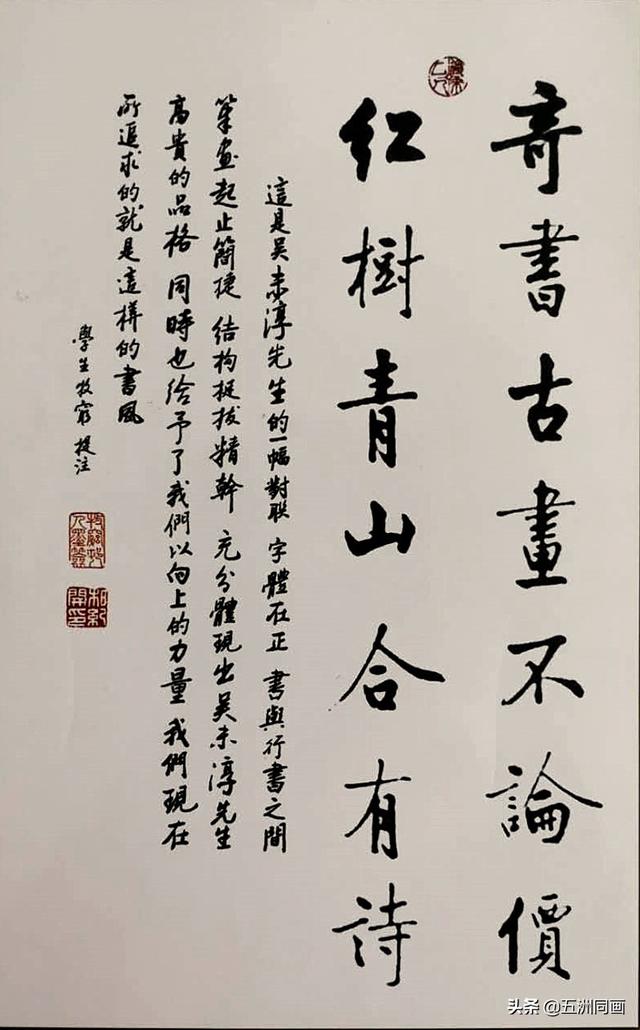 奇書古畫不論價
紅樹青山合有詩
這是吴未淳先生的一幅對联 字體在正 書與行書之間
筆畫起止簡捷 结构挺拔精幹 充分體現出吴未淳先生
高貴的品格 同時也给予了我們以向上的力量 我們現在
所追求的就是這樣的書風
學生牧窮 提注
头条 @五洲同画